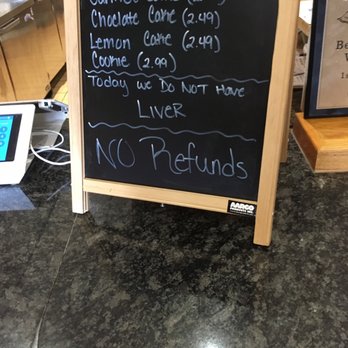 Choclate Cake (2.49)
Lemon Cake (2.49)
Cookie (2.99)
Today we Do NOT Have
LIVER
NO Refunds
AARCO
Be